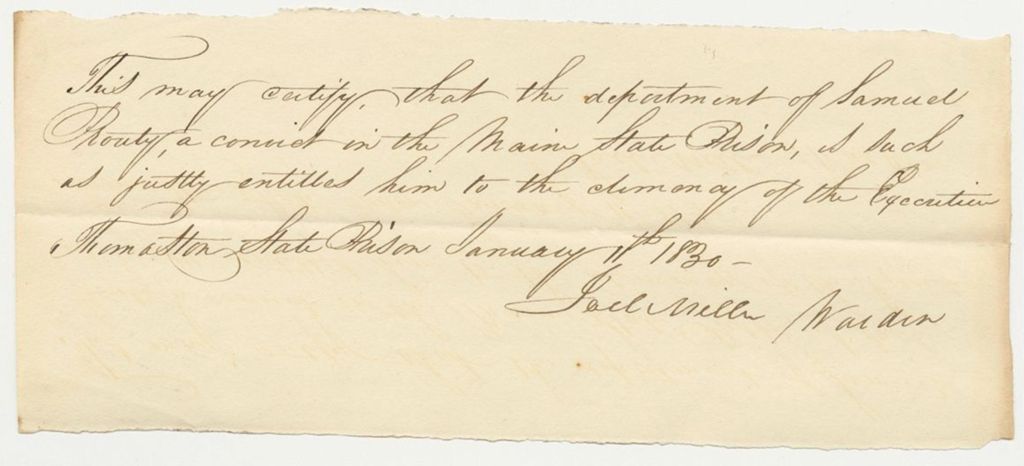 This may certify, that the deportment of Samuel
Prouty, a convict in the Maine State Prison, is such
as justly entitles him to the clemency of the Executive
Thomaston State Prison January 11th 1830 –
Joel Miller Warden